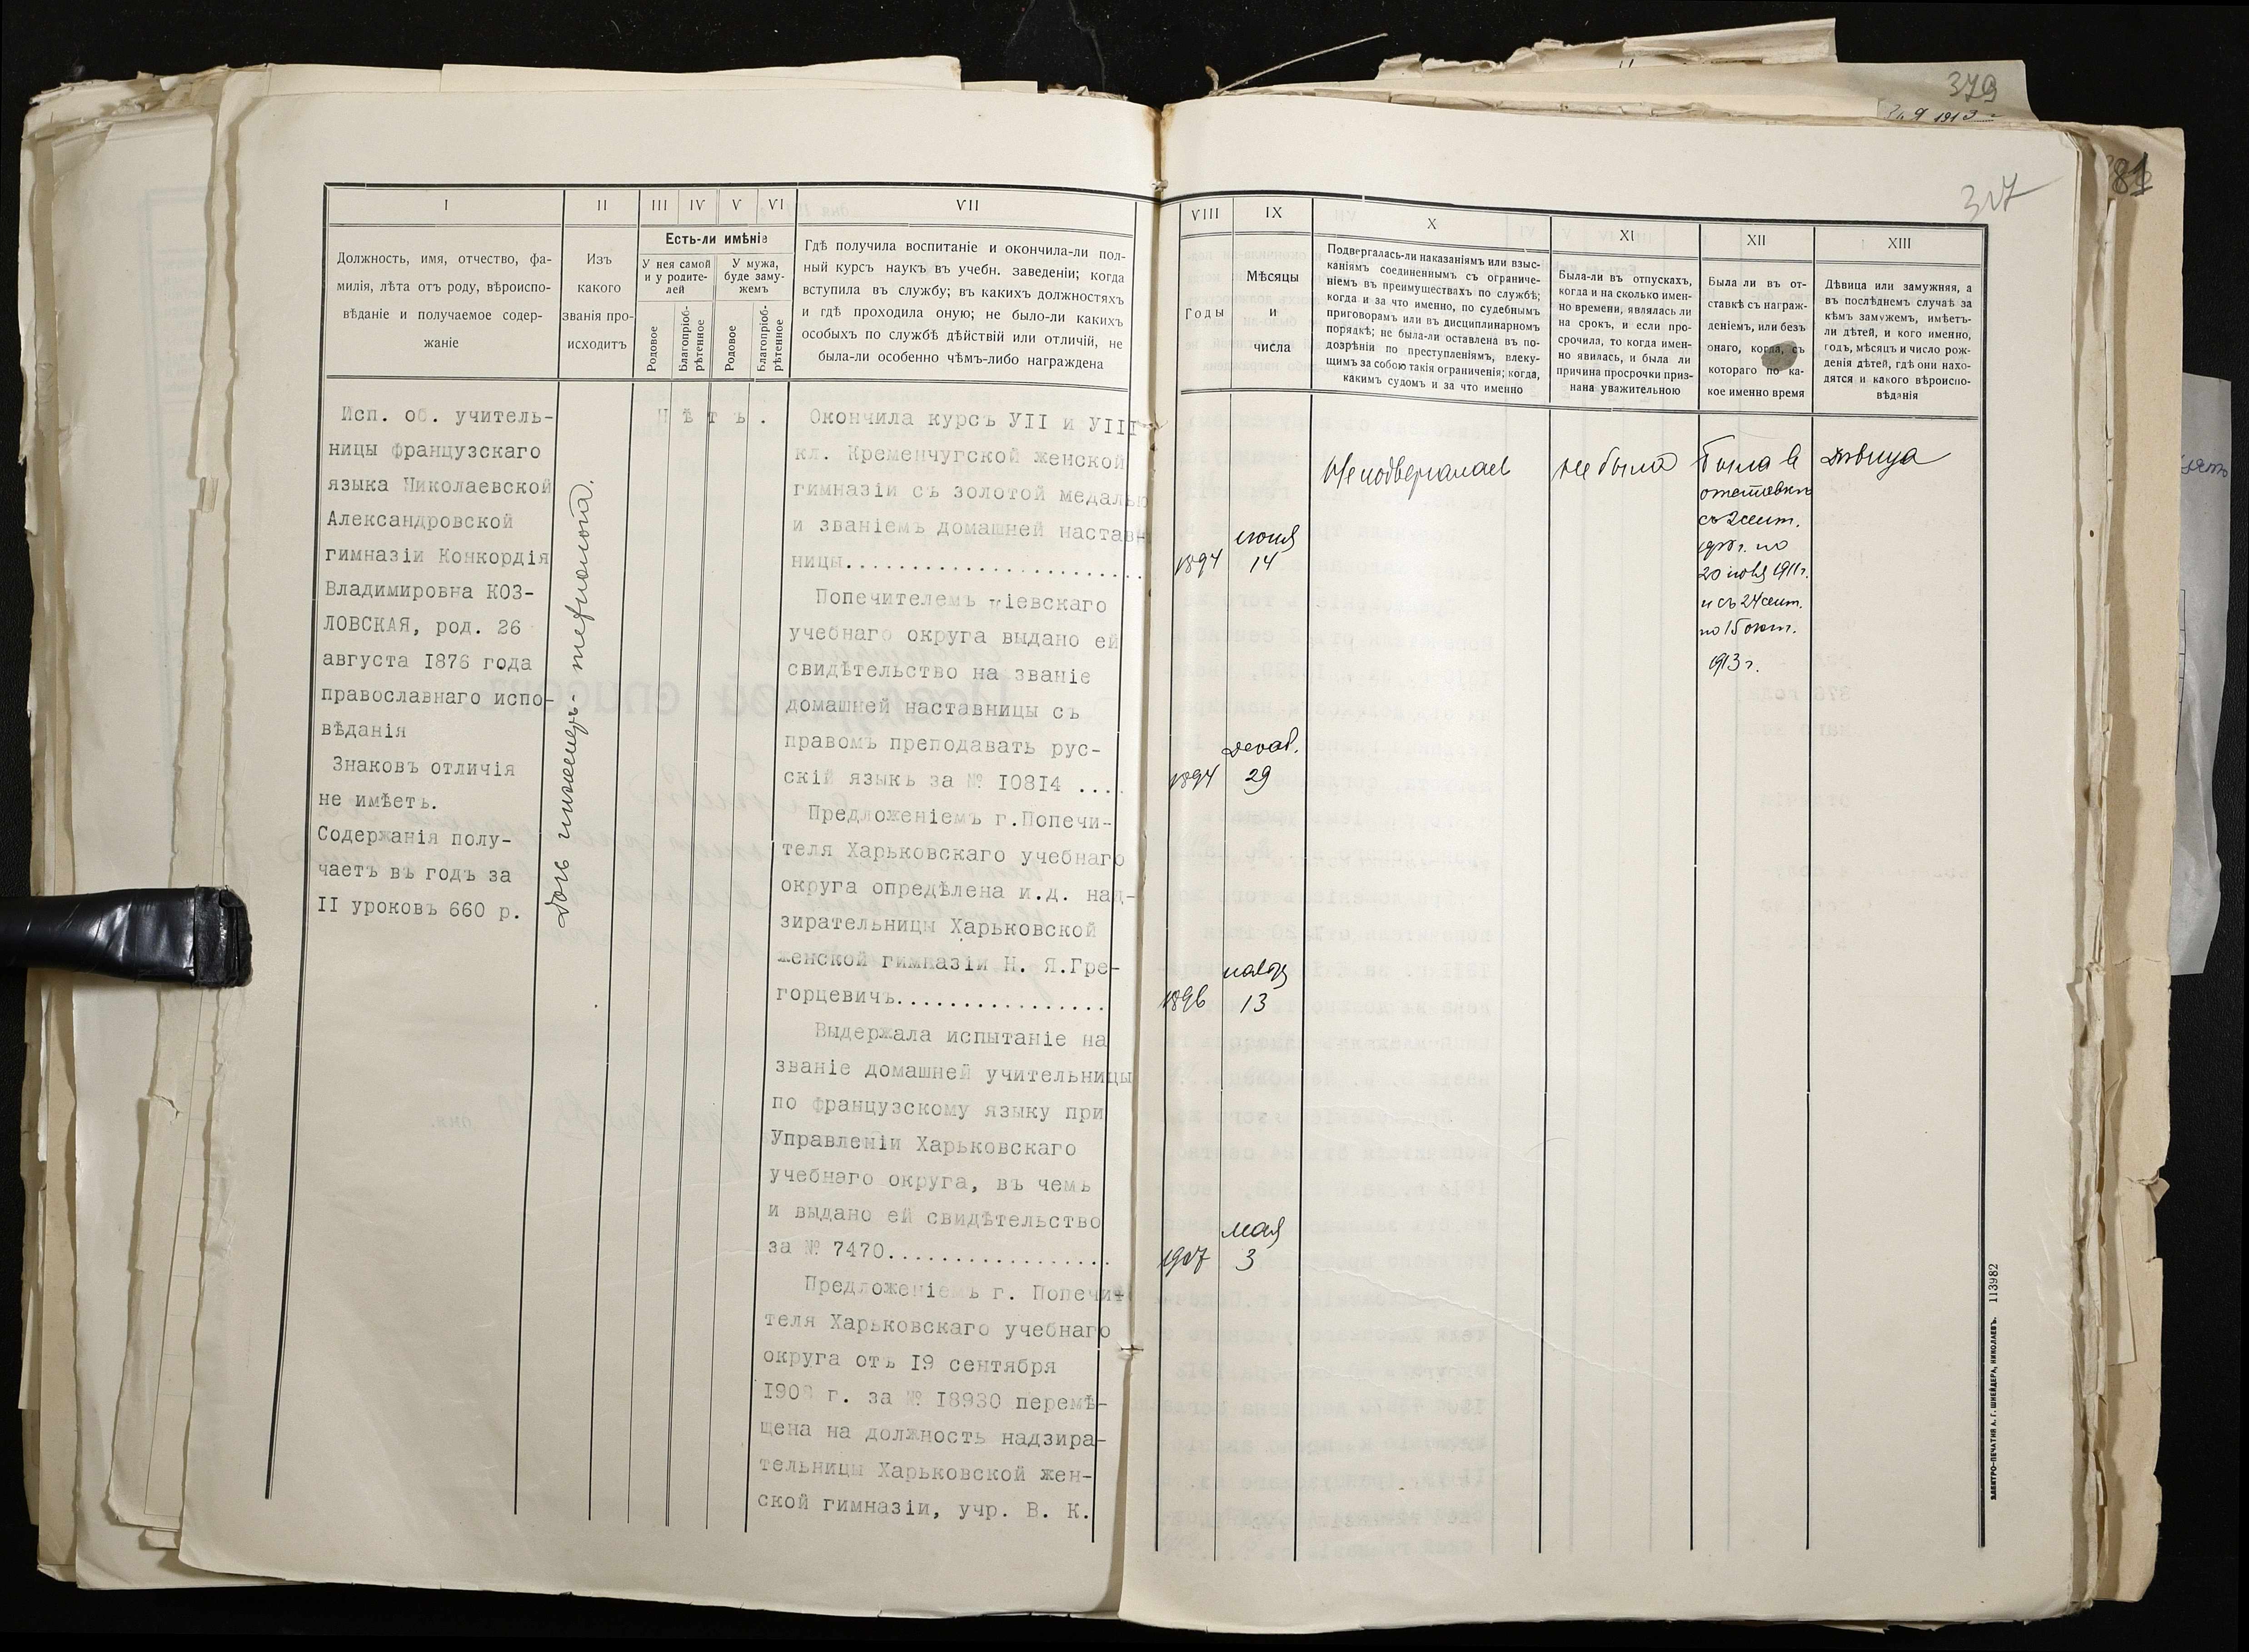 379
81
317
I
II
III
IV
V
VI
VII
Должность, имя, отчество, фа-
милія, лѣта отъ роду, вѣроиспо-
вѣданіе и получаемое содер-
жаніе
Изъ
какого
званія про-
исходитъ
Есть-ли имѣніе
У нея самой
и у родите-
лей
У мужа,
буде заму-
жемъ
Родовое
Благопріоб-
рѣтенное
Родовое
Благопріоб-
рѣтенное
Гдѣ получила воспитаніе и окончила-ли пол-
ный курсъ наукъ въ учебн. заведеніи; когда
вступила въ службу; въ какихъ должностяхъ
и гдѣ проходила оную; не было-ли какихъ
особыхъ по службѣ дѣйствій или отличій, не
была-ли особенно чѣмъ-либо награждена
Исп. об. учитель-
ницы французскаго
языка Николаевской
Александровской
гимназіи Конкордія
Владимировна КОЗ-
ЛОВСКАЯ, род. 26
августа 1876 года
православнаго испо-
вѣданія
Знаковъ отличія
не имѣетъ.
Содержанія полу-
чаетъ въ годъ за
II уроковъ 660 р.
Дочь инженеръ-технолога.
Нѣтъ.
Окончила курсъ УІІ и УІІІ
кл. Кременчугской женской
гимназіи съ золотой медалью
и званіемъ домашней настав
ницы.......................
Попечителемъ Кіевскаго
учебнаго округа выдано ей
свидѣтельство на званіе
домашней наставницы съ
правомъ преподавать рус-
скій языкъ за № I08I4 ....
Предложеніемъ г.Попечи-
теля Харьковскаго учебнаго
округа опредѣлена и.д. над-
зирательницы Харьковской
женской гимназіи Н. Я.Гре-
горцевичъ................
Выдержала испытаніе на
званіе домашней учительницы
по французскому языку при
Управленіи Харьковскаго
учебнаго округа, въ чемъ
и выдано ей свидѣтельство
за № 7470.................
Предложеніемъ г. Попечи-
теля Харьковскаго учебнаго
округа отъ I9 сентября
г. за № I8930 перемѣ-
щена на должность надзира-
тельницы Харьковской жен-
ской гимназіи, учр. В. К.
VIII
IX
X
XI
XII
XIII
Годы
Мѣсяцы
и
числа
Подвергалась-ли наказаніямъ или взыс-
каніямъ соединеннымъ съ ограниче-
ніемъ въ преимуществахъ по службѣ;
когда и за что именно, по судебнымъ
приговорамъ или въ дисциплинарномъ
порядкѣ; не была-ли оставлена въ по-
дозрѣніи по преступленіямъ, влеку-
щимъ за собою такія ограниченія; когда,
какимъ судомъ и за что именно
Была-ли въ отпускахъ,
когда и на сколько имен-
но времени, являлась ли
на срокъ, и если про-
срочила, то когда имен-
но явилась, и была ли
причина просрочки приз-
нана уважительною
Была ли въ от-
ставкѣ съ награж-
деніемъ, или безъ
онаго, когда, съ
котораго по ка-
кое именно время
Дѣвица или замужняя, а
въ послѣднемъ случаѣ за
кѣмъ замужемъ, имѣетъ-
ли дѣтей, и кого именно,
годъ, мѣсяцъ и число рож-
денія дѣтей, гдѣ они нахо-
дятся и какого вѣроиспо-
вѣданія
1894
июня
14
1894
декаб.
29
1896
ноября
13
1907
мая
3
Не подвергалась
не была
Была в
отставкѣ
съ 2 сент.
г. по
20 1911 г.
и съ 24 сент.
по 15 окт.
1913 г.
дѣвица
ЭЛЕКТРО-ПЕЧАТНЯ А. Г. ШНЕЙДЕРА, НИКОЛАЕВЪ. 113982